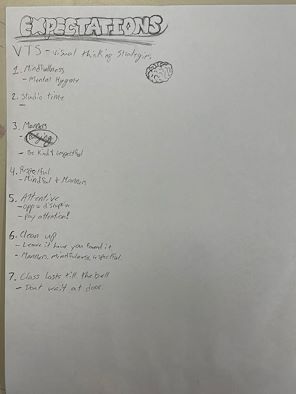 EXPECTATIONS
VTS - Visual thinking Strategies
1. Mindfulness
- Mental Hygiene
2. Studio time
-
3. Manners
-
- Be Kind & respectful
4. Respectful
- Mindful & Manners
5. Attentive
- opp = disruptive
- Pay attention!
6. Clean up
- Leave it how you found it
- Manners, mindfulness, respectful.
7. Class lasts till the bell
- Dont wait at door.